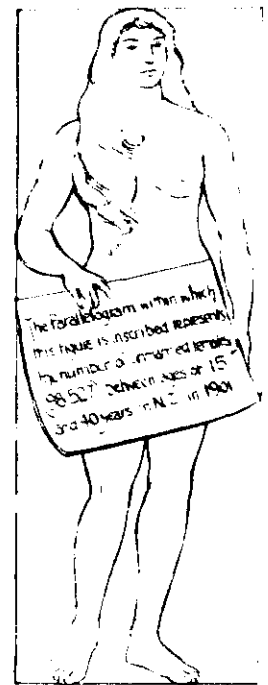 The Parallelogram within which
this figure is inscribed represents
the number of unmarried females
98,527 between ages of 15
and 40 years in N.Z. in 1901